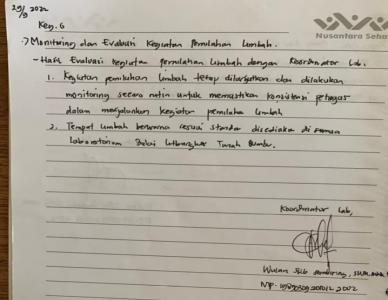 29/9 2022
Nusantara Sehat
Keg. 6
Monitoring dan Evaluasi Kegiatan Pemilahan Limbah.
- Hasil Evaluasi kegiatan pemilahan limbah dengan Koordinator Lab.
1. Kegiatan pemilahan limbah tetap dilanjutkan dan dilakukan
monitoring secara rutin untuk memastikan konsistensi petugas
dalam menjalankan kegiatan pemilahan limbah
2. Tempat limbah berwarna sesuai standar disediakan di semua
Laboratorium Balai Litbangkes Tanah Bumbu.
Koordinator Lab,
Wulan